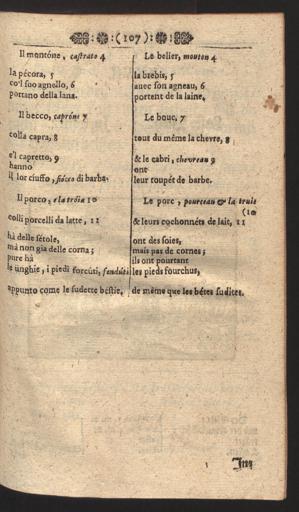 :(107):
Il montóne, castrato 4
la pécora, 5
co'l suo agnello, 6
portano della lana.
Il becco, capróne 7
colla capra, 8
e'l capretto, 9
hanno
il lor ciuffo, fiócco di barba.
Il porco, e la tróia 10
colli porcelli da latte, 11
hà delle sétole,
mà non già delle corna;
pure hà
le unghie, i piedi forcúti, fenduti
appunto come le sudette béstie,
Le belier, mouton 4
la brebis, 5
avec son agneau, 6
portent de la laine,
Le bouc, 7
tout du même la chevre, 8
& le cabri, chevreau 9
ont
leur toupét de barbe.
Le porc, pourceau & la truie
(10
& leurs cochonnéts de lait, 11
ont des soies,
mais pas de cornes;
ils ont pourtant
les pieds fourchus,
de même que les bétes sudites.